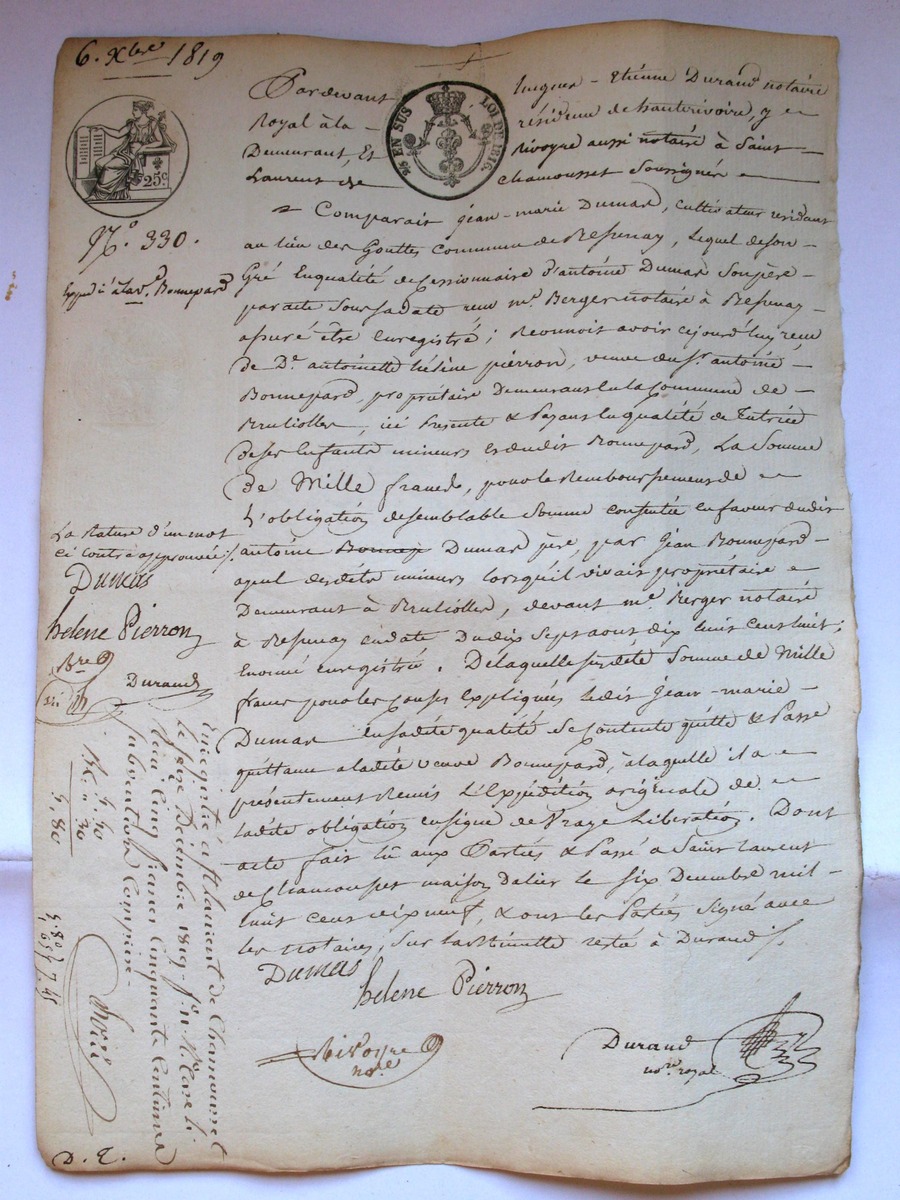 6. Xbre 1819
Pardevant Jucques - Etiénne Durand notaire
Royal à la - résidence de hauterivoire, y =
Demeurant, Et Rivoyre aussi notaire à Saint -
Laurent de Chamousset Soussignés =
25 EN SUS LOI DE 1816.
25c
N.o 330.
Expd.n à la v.e Bonnepard
Comparait Jean-marie Dumas, cultivateur residant
au lieu des Gouttes Commune de Bessenay, lequel de son
Gré en qualité de Cessionnaire d'antoine Dumas Son père -
par acte Sous Sa date reçu me. Berger notaire à Bessenay
assuré être Enregistré ; Reconnoit avoir cejourd'huy reçu
de De. antoinette héléne piérron, veuve du Sr. antoine -
Bonnepard, propriétaire Demeurans En la Commune de -
Bruliolles, ici Présente & Payans En qualité de Tutrice
de ses Enfants mineurs & dudit Bonnepard, La Somme
de Mille francs, pour le Remboursement de =
L'obligation de semblable Somme consentie en faveur dudit
antoine Bonnep Dumas père, par Jean Bonnepard -
ayeul desdits mineurs lorsqu'il vivait propriétaire =
Demeurant à Brulioles, devant me. Berger notaire
à Bessenay En date Du dix Sept aout dix huit Cent huit ;
Enoncé enregistrée. De laquelle susdite Somme de Mille
francs pour les Causes Expliqués ledit Jean-marie -
Dumas En sadite qualité Se Contente quitte & Passe
quittance a ladite veuve Bonnepard, à laquelle il a =
présentement Remis L'Expédition originale de =
ladite obligation en signe de Vraye Libération. Dont
acte fait lû aux Parties & Passé a Saint Laurent
de Chamousset maison Dalier le six Decembre mil -
huit Cent dixneuf, & ont les Parties Signé avec
les notaires, Sur la Minutte restée à Durand
Dumas
helene Pierron
Rivoyre nore
Durand
nore. royal
La rature d'un mot
ci contre approuvée
Dumas
helene Pierron
Durand
Enregistré à St laurent de Chamousset
le seize Decembre 1819. fo. 11. Ro. Case 1.
reçu Cinq francs Cinquante Centimes
subvention Comprise -
D. E.